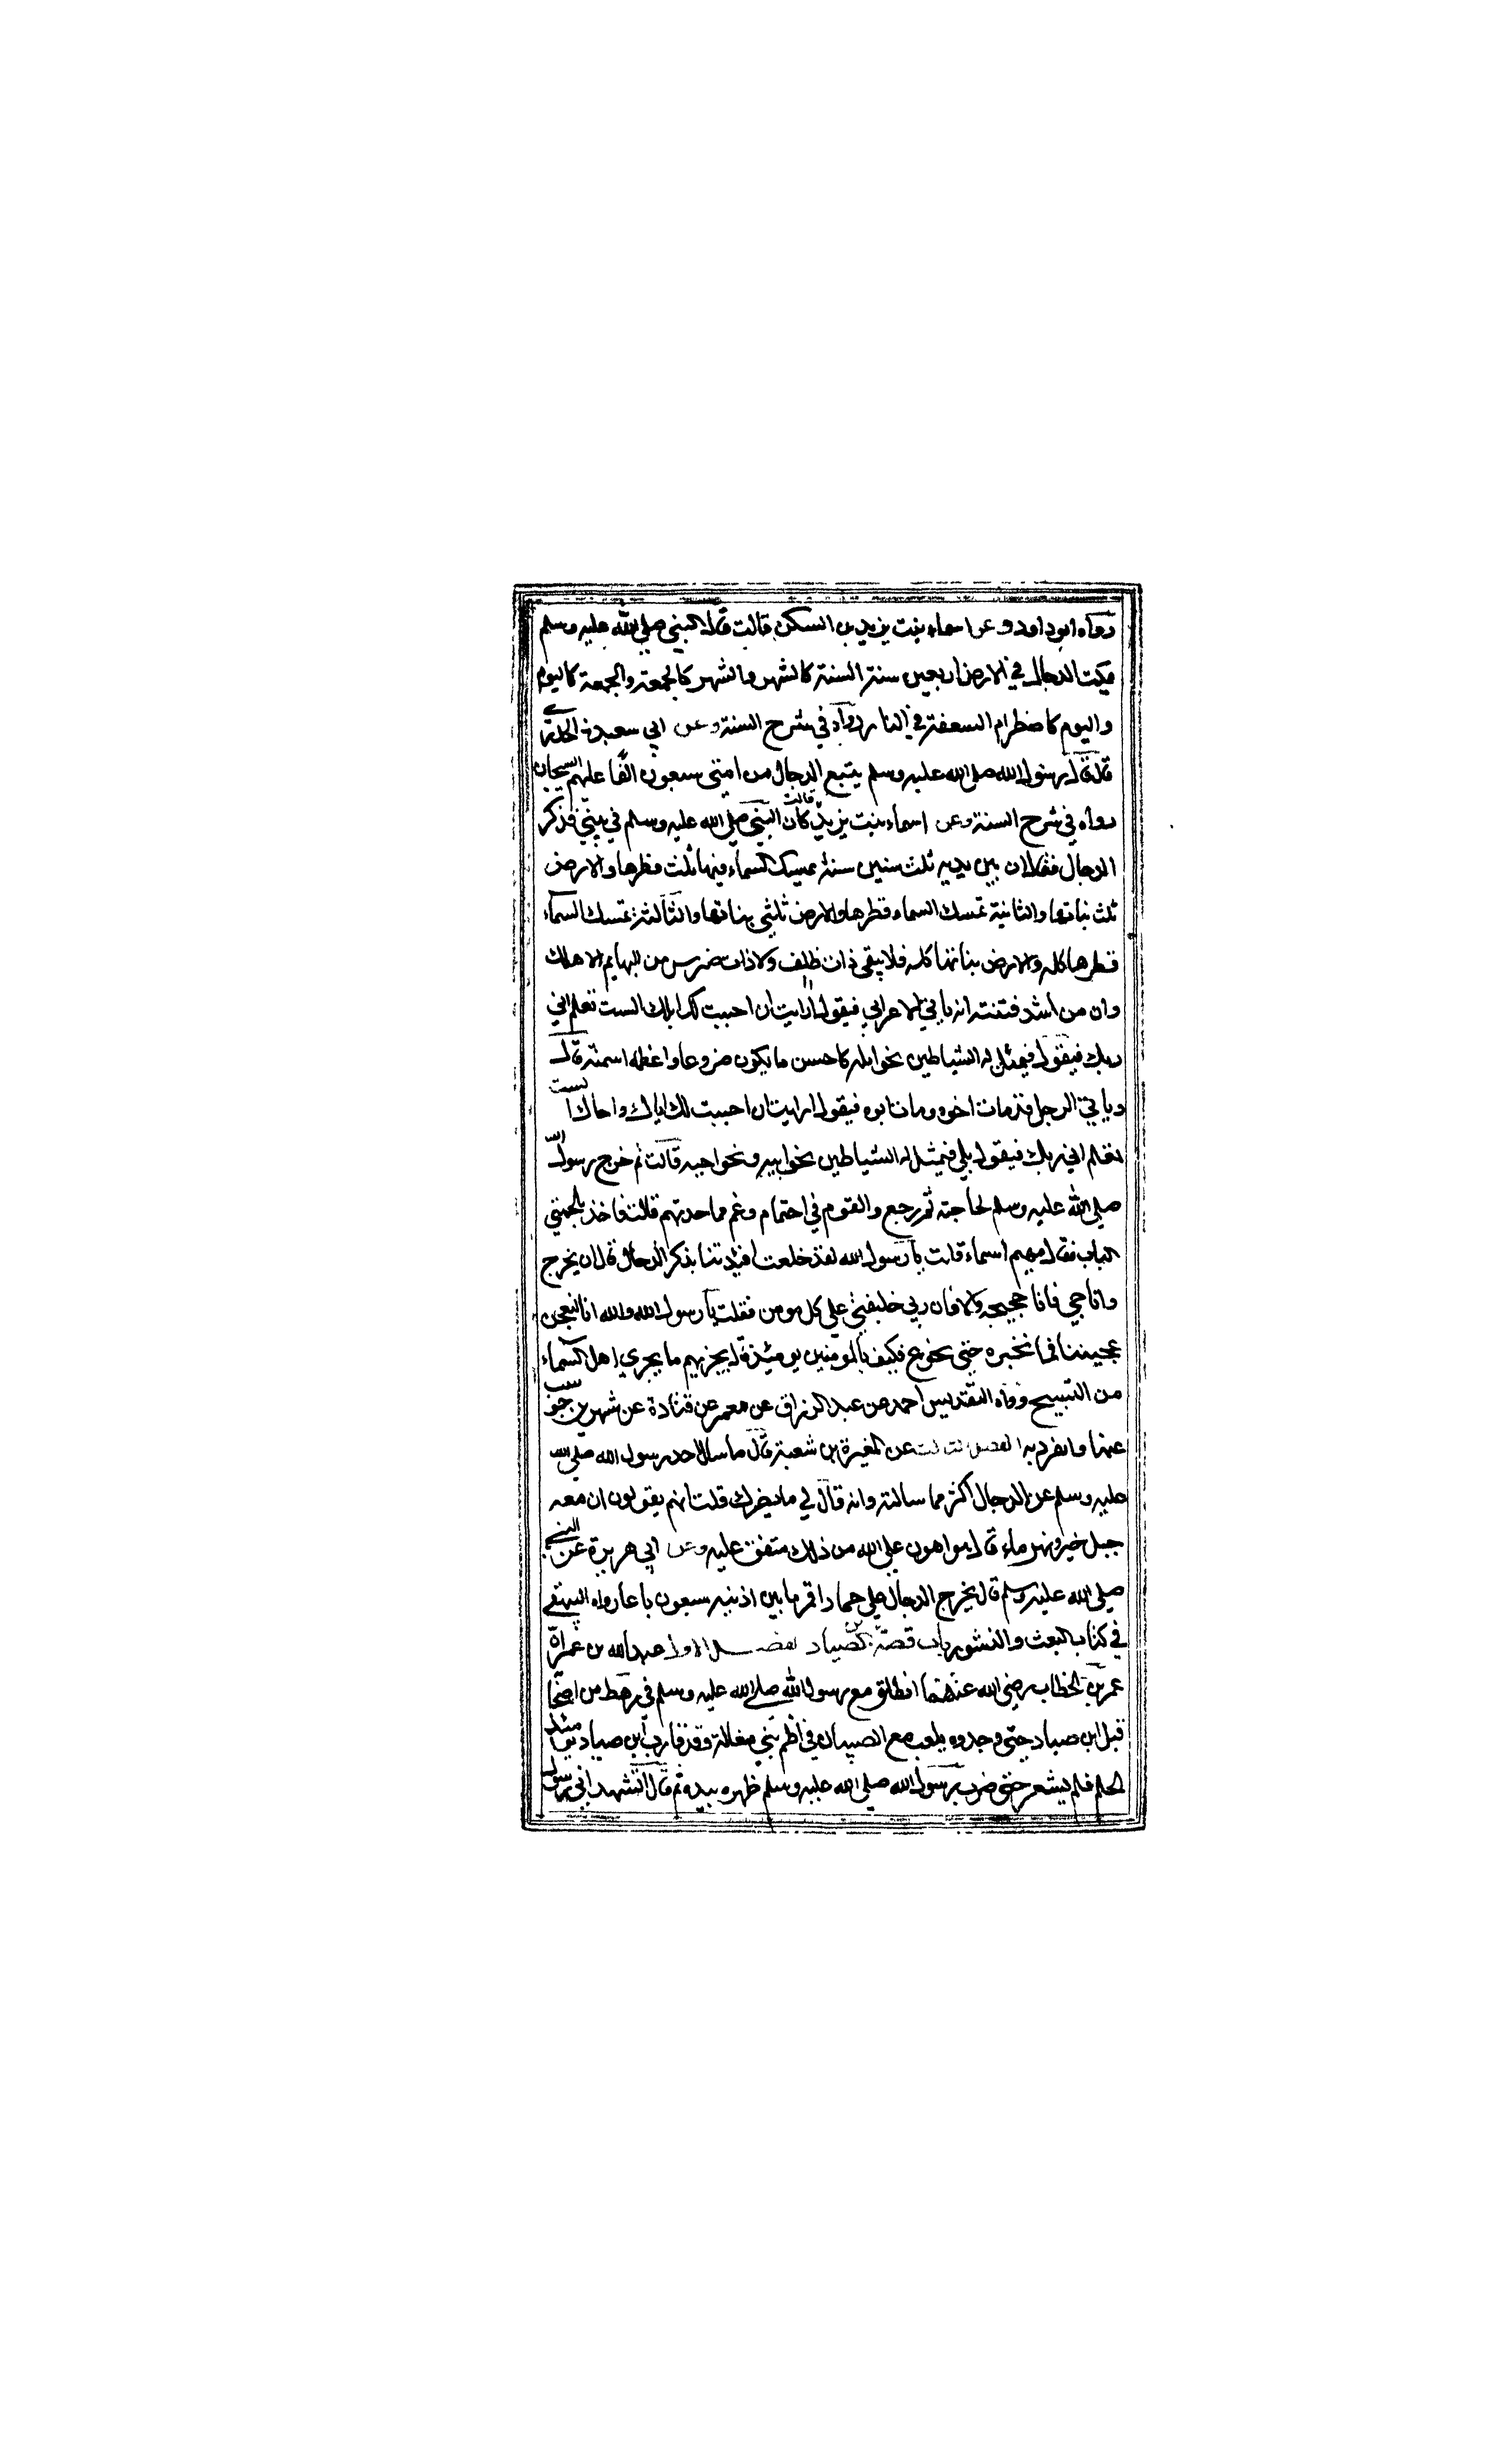 رواه ابو داود وعن اسماء بنت يزيد بن السكن قالت قال النبي صلي الله عليه وسلم
يمكث الدجال في الارض اربعين سنة السنة كالشهر والشهر كالجمعة والجمعة كاليوم
واليوم كاضطرام السعفة في النار رواه في شرح السنة وعن ابي سعيد الخدري
قال قال رسول الله صلى الله عليه وسلم يتبع الدجال من امتي سبعون الفا عليهم السيجان
رواه في شرح السنة وعن اسماء بنت يزيد قالت كان النبي صلى الله عليه وسلم في بيتي فذكر
الدجال فقال ان بين يديه ثلث سنين سنة تمسك السماء فيها ثلث قطرها والارض
ثلث نباتها والثانية تمسك السماء قطرها والارض ثلثي نباتها والثالثة تمسك السماء
قطرها كله والارض نباتها كله فلا يبقى ذات ظلف ولا ذات ضرس من البهايم الا هلك
وان من اشد فتنته انه ياتي الاعرابي فيقول ارايت ان احييت لك ابلك الست تعلم اني
ربك فيقول فيمثل له الشياطين نحو ابله كاحسن ما يكون ضروعا واعظمه اسمنة قال
وياتي الرجل قد مات اخوه ومات ابوه فيقول ارايت ان احييت لك اباك واخاك الست
تعلم اني ربك فيقول بلي فيمثل له الشياطين نحو ابيه ونحو اخيه قالت ثم خرج رسول الله
صلي الله عليه وسلم لحاجته ثم رجع والقوم في اهتمام وغم مما حدثهم قالت فاخذ بلجمتي
الباب فقال مهيم اسماء قالت يا رسول الله لقد خلعت افئدتنا بذكر الدجال قال ان يخرج
وانا حي فانا حجيجه والا فان ربي خليفتي علي كل مومن فقلت يا رسول الله والله انا لنعجن
عجيننا فما نخبزه حتى نجوع فكيف بالمومنين يومئذ قال يجزيهم ما يجزي اهل السماء
من التسبيح والتقديس احمد عن عبد الرزاق عن معمر عن قتادة عن شهر بن حوشب
عنها وانفرد به الفصل الثالث عن المغيرة بن شعبة قال ما سال احد رسول الله صلي الله
عليه وسلم عن الدجال اكثر مما سالته وانه قال لي ما يضرك قلت انهم يقولون ان معه
جبل خبز ونهر ماء قال هو اهون علي الله من ذلك متفق عليه وعن ابي هريرة عن النبي
صلي الله عليه وسلم قال يخرج الدجال علي حمار اقمر ما بين اذنيه سبعون باعا رواه البيهقي
في كتاب البعث والنشور باب قصة ابن الصياد الفصل الاول عبد الله بن عمر ان
عمر بن الخطاب رضي الله عنهما انطلق مع رسول الله صلى الله عليه وسلم في رهط من اصحابه
قبل ابن صياد حتى وجدوه يلعب مع الصبيان في اطم بني مغالة وقد قارب ابن صياد يومئذ
الحلم فلم يشعر حتى ضرب رسول الله صلى الله عليه وسلم ظهره بيده ثم قال اتشهد اني رسول